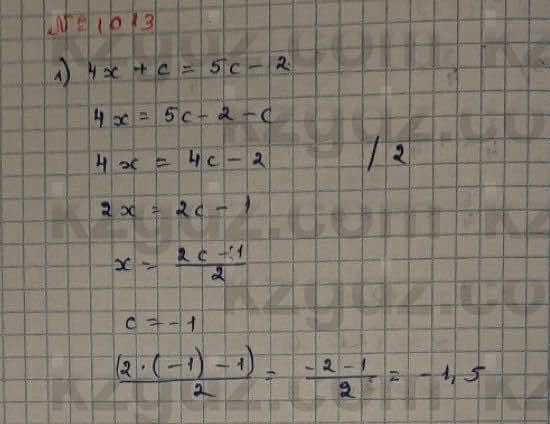 № 1013
1) 4x + c = 5c - 2
4x = 5c - 2 - c
4x = 4c - 2 / 2
2x = 2c - 1
x = (2c - 1)/2
c = -1
(2·(-1) - 1)/2 = (-2 - 1)/2 = -1,5